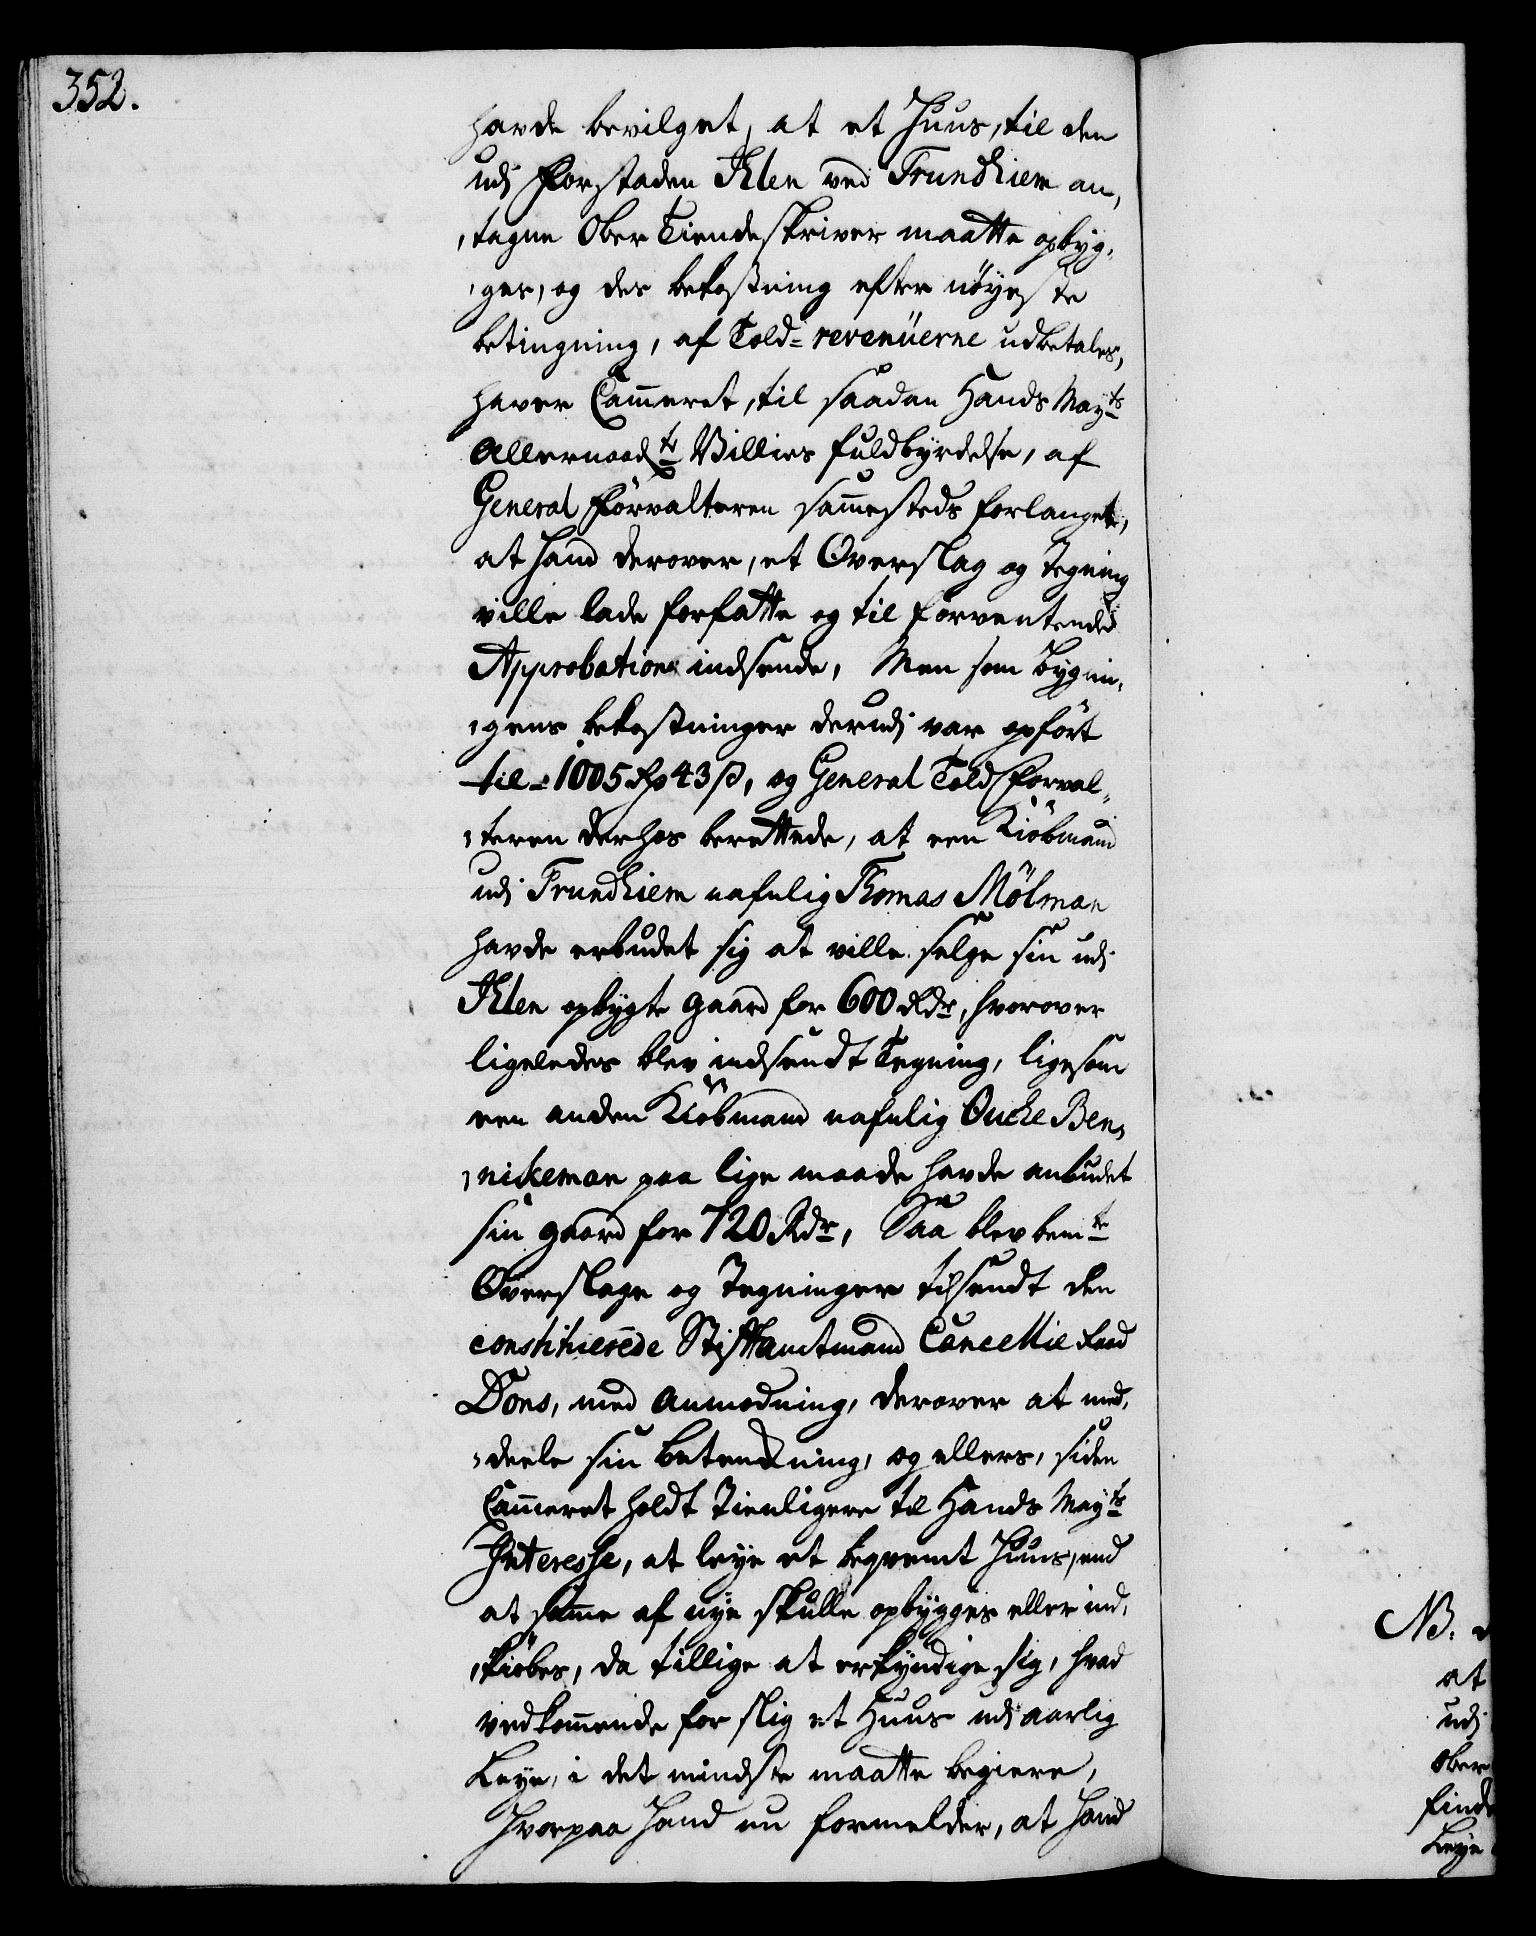 352.
havde bevilget, at et Huus, til den
udj Forstaden Ihlen ved Trundhiem an,
,tagne Ober Tiendeskriver maatte opbyg,
,ges, og des bekostning efter nöyeste
betingning, af Told- revenüerne udbetales,
haver Cammeret, til saadan Hands May:ts
Allernaad:te Villies fuldbyrdelse, af
General Forvalteren sammesteds forlanget,
at Hand derover, et Overslag og Tegning
ville lade forfatte og til forventende
Approbation indsende, Men som bygnin,
,gens bekostninger derudj var opfört
til - 1005 Rdr 43 ß, og General Toldforval,
,teren derhos berettede, at een Kiöbmand
udj Trundhiem nafnlig Thomas Mölman
havde erbudet sig at ville selge sin udj
Ihlen opbygte gaard for 600 Rdr, hvorover
ligeledes blev indsendt Tegning, ligesom
een anden Kiöbmand nafnlig Oucke Ben,
,nikeman paa lige maade havde anbudet
sin gaard for 720 Rdr, Saa blev bem:te
Overslage og Tegninger tilsendt den
constituerede Stiftamtmand Cancellie Raad
Dons, med Anmodning, derover at med,
,deele sin betænkning, og ellers, siden
Cammeret holdt tienligere til Hands May:ts
Interesse, at leye et beqvemt Huus, end
at samme af nye skulle opbygges eller ind,
,kiöbes, da tillige at erkyndige sig, hvad
vedkommende for slig et Huus udj aarlig
Leye, i det mindste maatte begiere,
Hvorpaa Hand nu formelder, at Hand
NB.
at
udj
Ober
finde
Leye